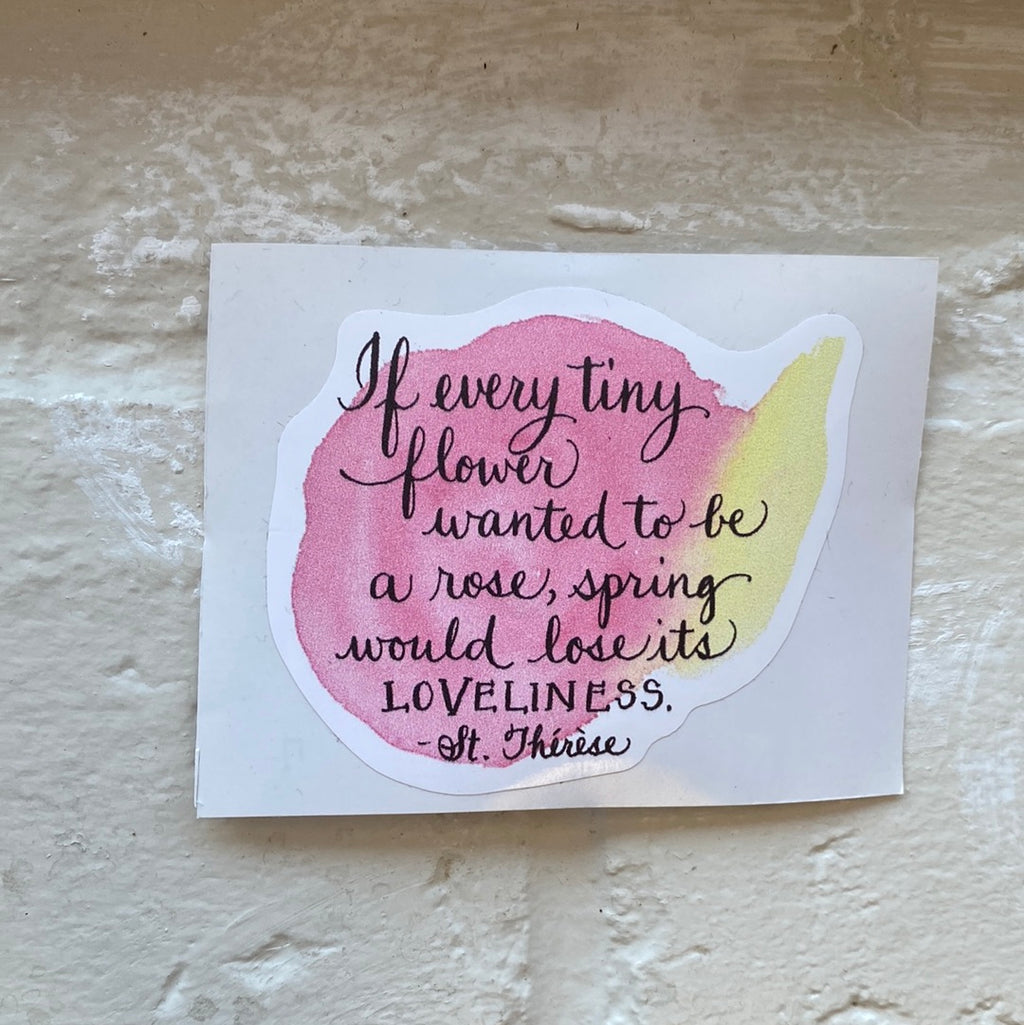 If every tiny
flower
wanted to be
a rose, spring
would lose its
LOVELINESS.
- St. Thérèse